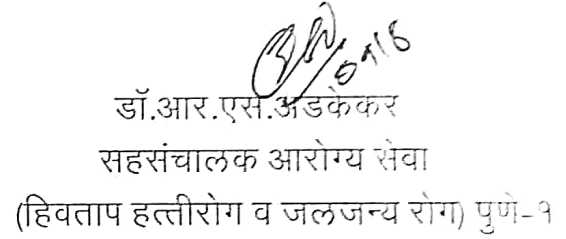 डॉ.आर.एस.अडकेकर
सहसंचालक आरोग्य सेवा
(हिवताप हत्तीरोग व जलजन्य रोग) पुणे-१